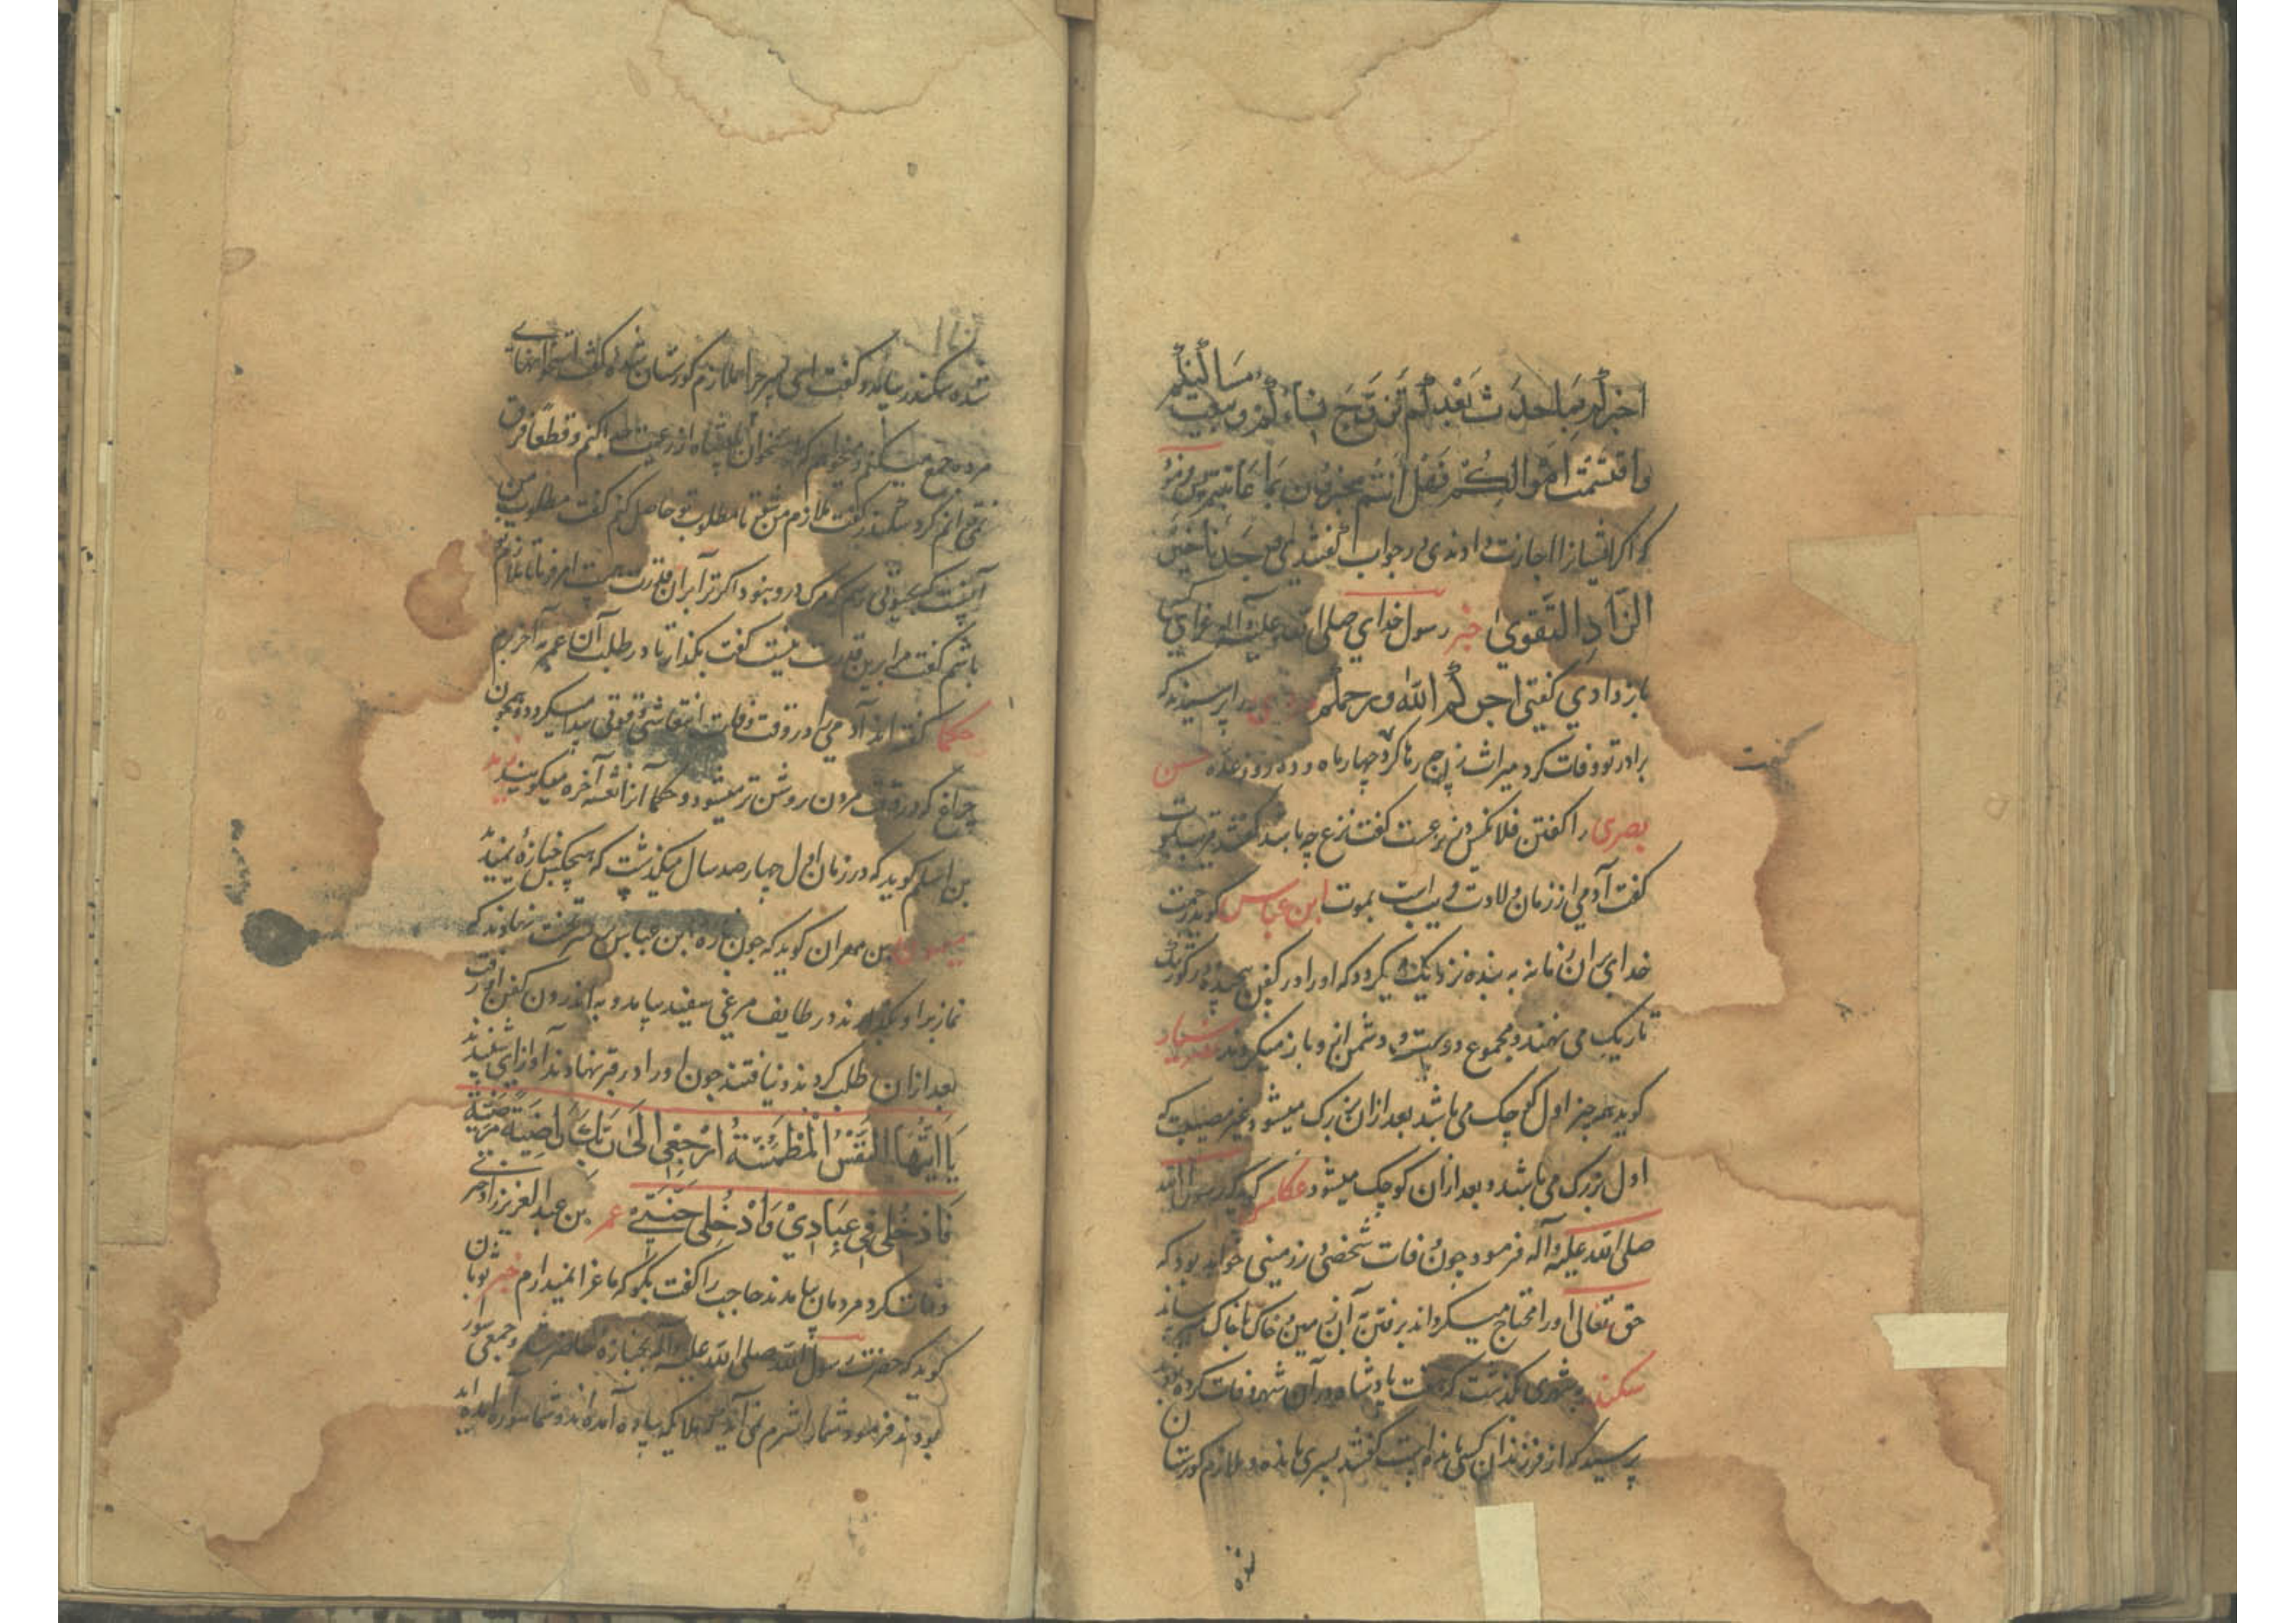 اخبركم بما حدث بعدكم تزوج نساءكم و سكنت مساكنكم
واقتسمت اموالكم فهل انتم مخبرون بما عاينتم پس فرمود
كه اگر ایشانرا اجازت دادندی در جواب گفتندی وجدنا خیر
الزاد التقوی خبر رسول خدای صلی الله علیه وآله عزای کسی
باز دادی گفتی اجركم الله ورحمكم را پرسیدند که
برادر تو وفات کرد میراث زوج رها کرد چهار ماه و ده روز عده حسن
بصری را گفتن فلانکس در نزعست گفت نزع چه باشد گفتند قریبست بموت
گفت آدمی از زمان ولادت قریب است بموت ابن عباس گوید رحمت
خدای بران زمان به بنده نزدیک میگردد که او را در کفن پیچیده در گور تنگ
تاریک می نهند و مجموع دوست و دشمن ازو باز میگردند
گوید هر چیز اول کوچک می باشد بعد از آن بزرگ میشود غیر مصیبت که
اول بزرگ می باشد و بعد از آن کوچک میشود عکامس گوید که رسول الله
صلی الله علیه وآله فرمود چون وفات شخصی در زمینی خواهد بود که
حق تعالی او را محتاج میگرداند برفتن آن زمین خاک با خاک رساند
سکندر بشهری بگذشت که هفت پادشاه در آن شهر وفات کرده بودند
پرسید که از فرزندان کسی مانده است گفتند پسری مانده و ملازم گورستان
شده سکندر بیامد و گفت ای پسر چرا ملازم گورستان شده گفت استخوانهای
مرده جمع میکنم و میخواهم که استخوان پادشاه از رعیت جدا کنم و قطعا فرق
نمی توانم کرد سکندر گفت ملازم من شو تا مطلوب تو حاصل کنم گفت مطلوب من
آنست که بحیوتی رسم که مرگ درو نبود اگر ترا بر آن قدرت هست امر فرما تا ملازم تو
باشم گفت مرا برین قدرت نیست گفت بگذار تا در طلب آن عمر به آخر برم
حکما گفته اند آدمی را در وقت وفات انتعاشی و قوتی پیدا میگردد همچون
چراغ که در وقت مردن روشن تر میشود و حکما آنرا نعشه آخره میگویند زید
بن اسلم گوید که در زمان اول چهار صد سال میگذشت که هیچکس جنازه نمیدید
میمون بن مهران گوید که چون جنازه ابن عباس بر تخت نهادند که
نماز برا و بگذارند در طایف مرغی سفید بیامد و به اندرون کفن او رفت
بعد ازان طلب کردند و نیافتند چون او را در قبر نهادند آوازی شنیدند
یا ایتها النفس المطمئنة ارجعی الی ربك راضیة مرضیة
فادخلی فی عبادی وادخلی جنتی عمر بن عبد العزیز را دختر
وفات کرد مردمان بیامدند حاجب را گفت بگو که ما عزا نمیداریم خبر ثوبان
گوید که حضرت رسول الله صلی الله علیه وآله بجنازه حاضر شد و جمعی سوار
بودند فرمود شما را شرم نمی آید که ملایکه پیاده آمده اند و شما سواره آمده اید
گفت
شده